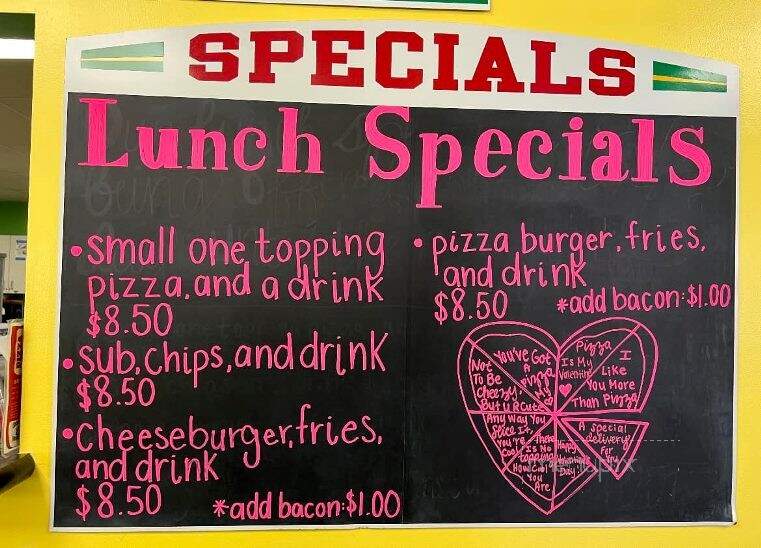 SPECIALS
Lunch Specials
•small one topping
pizza, and a drink
$8.50
•sub, chips, and drink
$8.50
•cheeseburger, fries,
and drink
$8.50 *add bacon:$1.00
•pizza burger, fries,
and drink
$8.50 *add bacon:$1.00
Not
To Be
Cheezy,
But U R Cute
You've Got
A
Pizza
My
Pizza
Is My
Valentine
I
Like
You More
Than Pizza
Any Way You
Slice It,
You're
Cool
There
Is No
Topping
How Cool
You
Are
Happy
Day!
A special
delivery
For
You